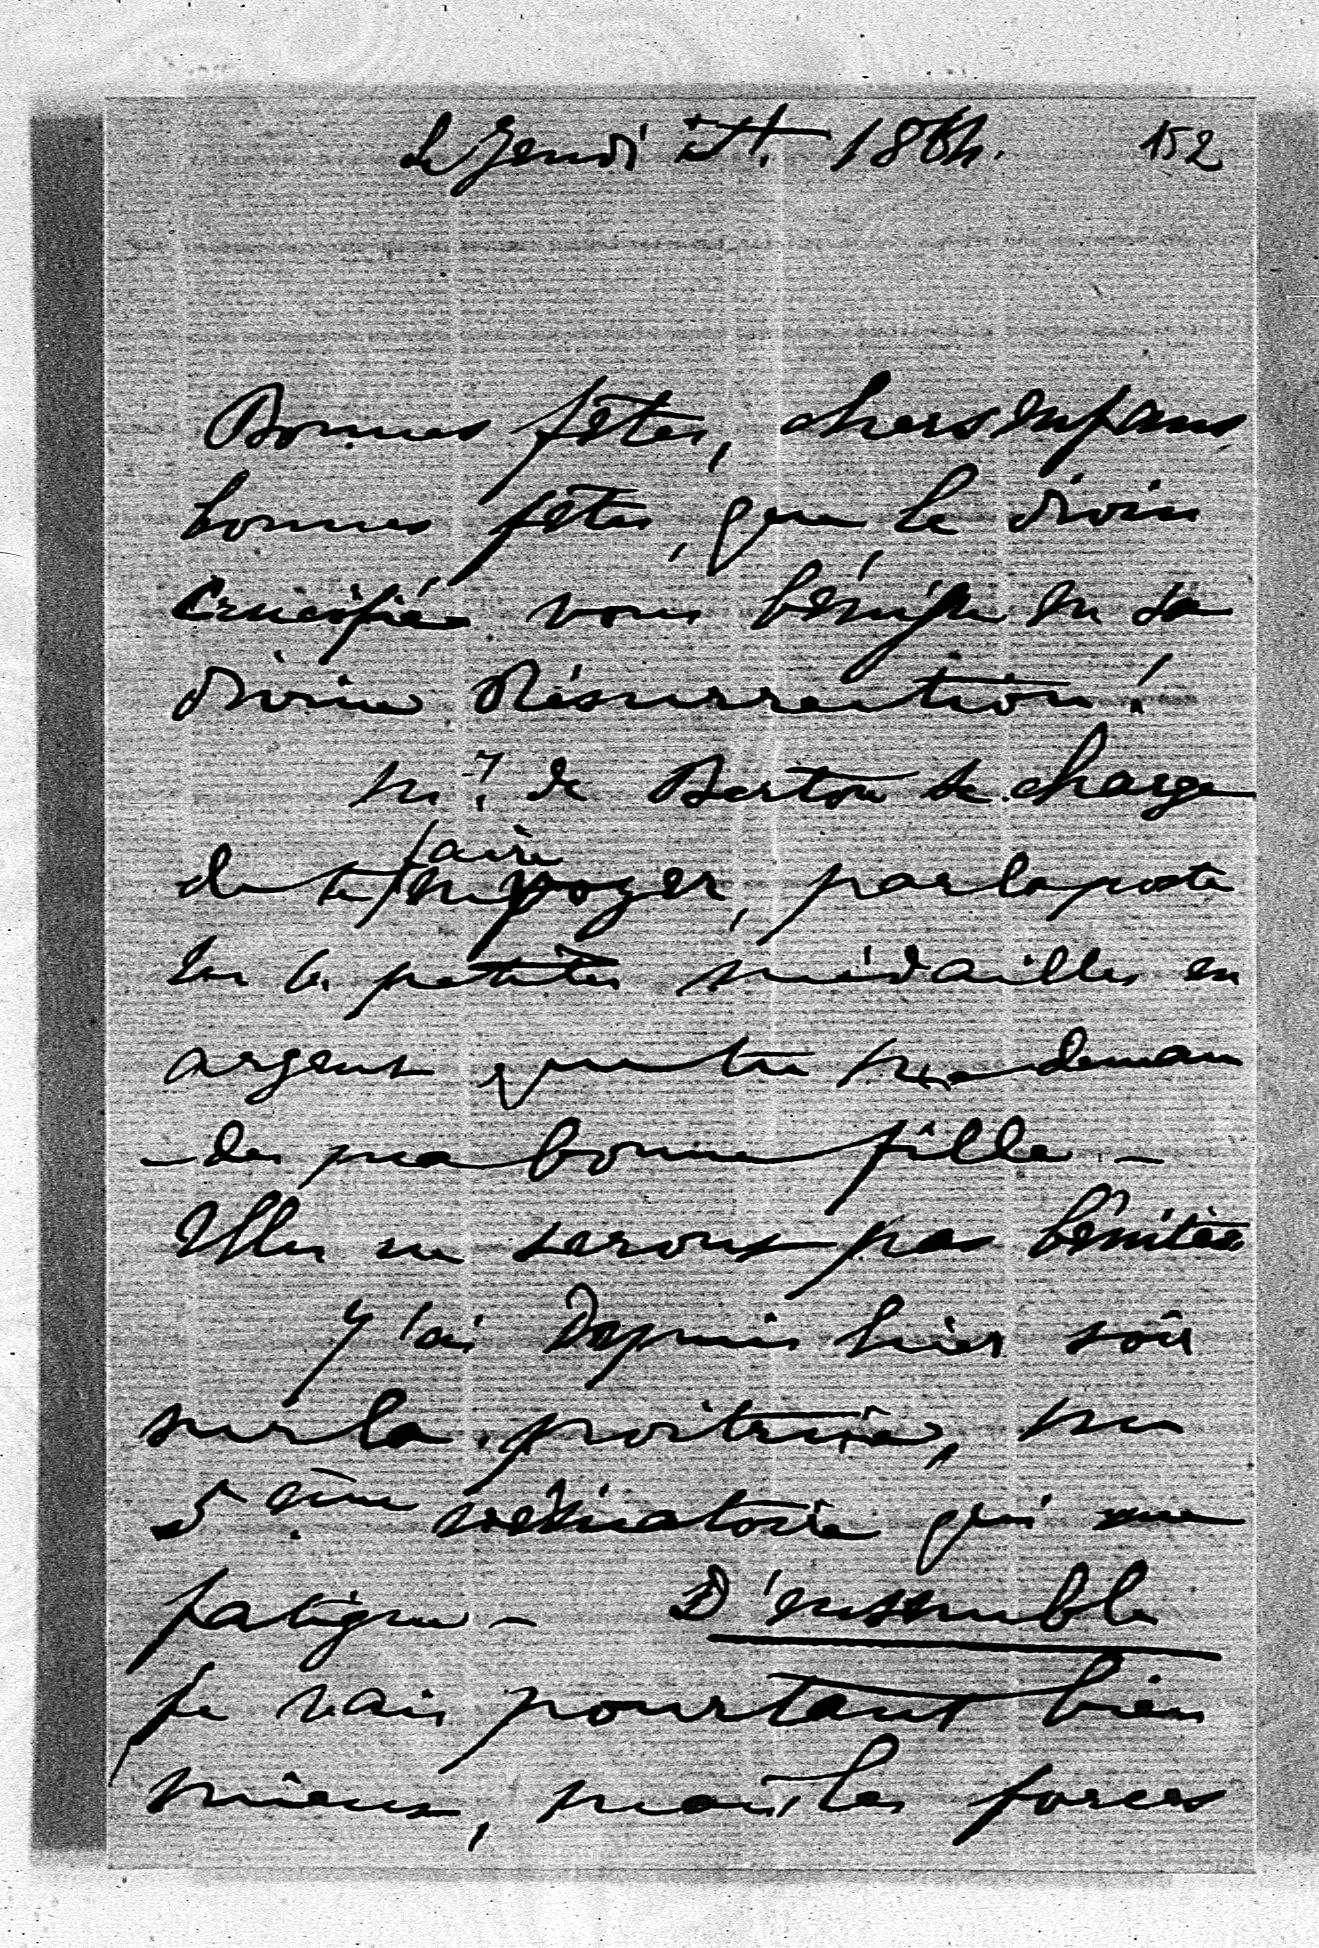 Le Jeudi St. 1864. 152
Bonnes fêtes, chers enfans,
bonnes fêtes, que le divin
Crucifié vous bénisse en sa
divine Résurrection !
Mr. de Bertou se charge
de te faire envoyer, par la poste
les 6. petites médailles en
argent que tu me deman
-des ma bonne fille –
Elles ne seront pas bénites
J'ai depuis hier soir
sur la poitrine, un
5ème vésicatoire qui me
fatigue – D'ensemble
je vais pourtant bien
mieux, mais les forces